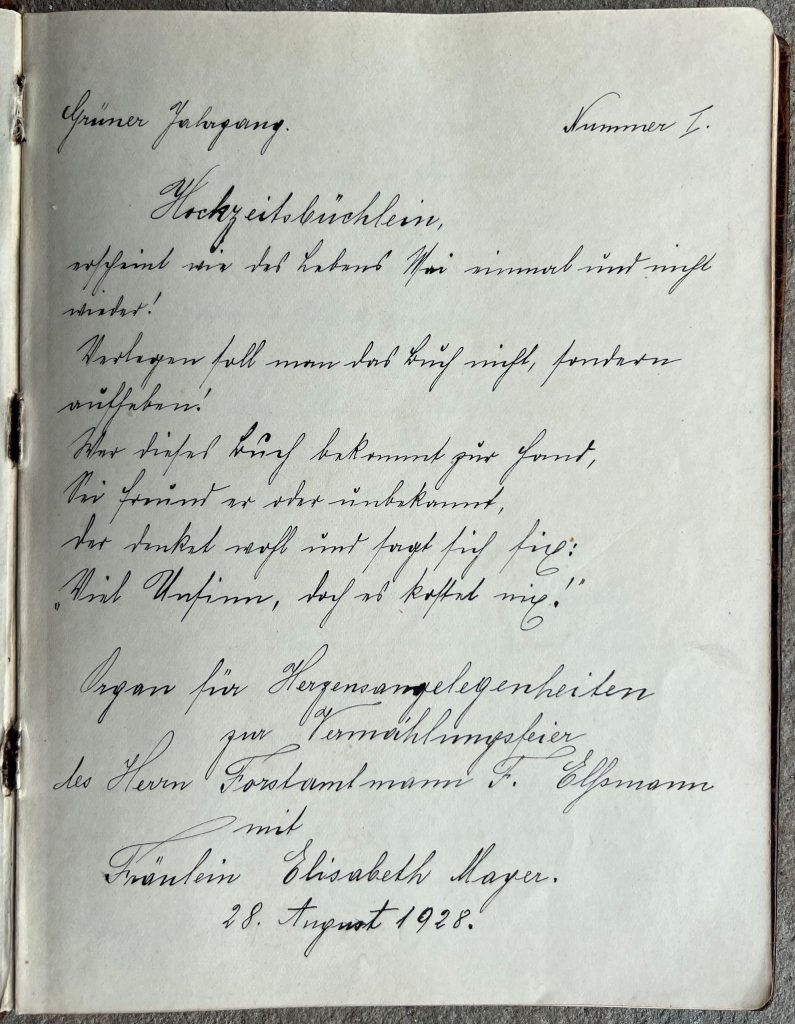 Grüner Jahrgang. Nummer I.
Hochzeitsbüchlein,
erscheint wie des Lebens Mai einmal und nicht
wieder!
Verlegen soll man das Buch nicht, sondern
aufheben!
Wer dieses Buch bekommt zur Hand,
Sei Freund er oder unbekannt,
der denket wohl und sagt sich fix:
„Viel Unsinn, doch es kostet nix!"
Organ für Herzensangelegenheiten
zur Vermählungsfeier
des Herrn Forstamtmann F. Elßmann
mit
Fräulein Elisabeth Mayer.
28. August 1928.